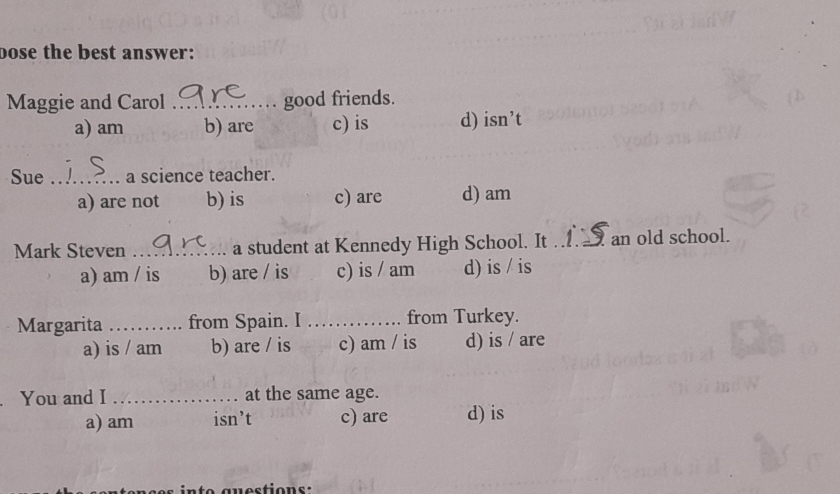 oose the best answer:
Maggie and Carol ..are.. good friends.
a) am b) are c) is d) isn't
Sue ..is.. a science teacher.
a) are not b) is c) are d) am
Mark Steven ..are.. a student at Kennedy High School. It ..is.. an old school.
a) am / is b) are / is c) is / am d) is / is
Margarita ........... from Spain. I .............. from Turkey.
a) is / am b) are / is c) am / is d) is / are
You and I .................. at the same age.
a) am isn't c) are d) is
the sentences into questions: